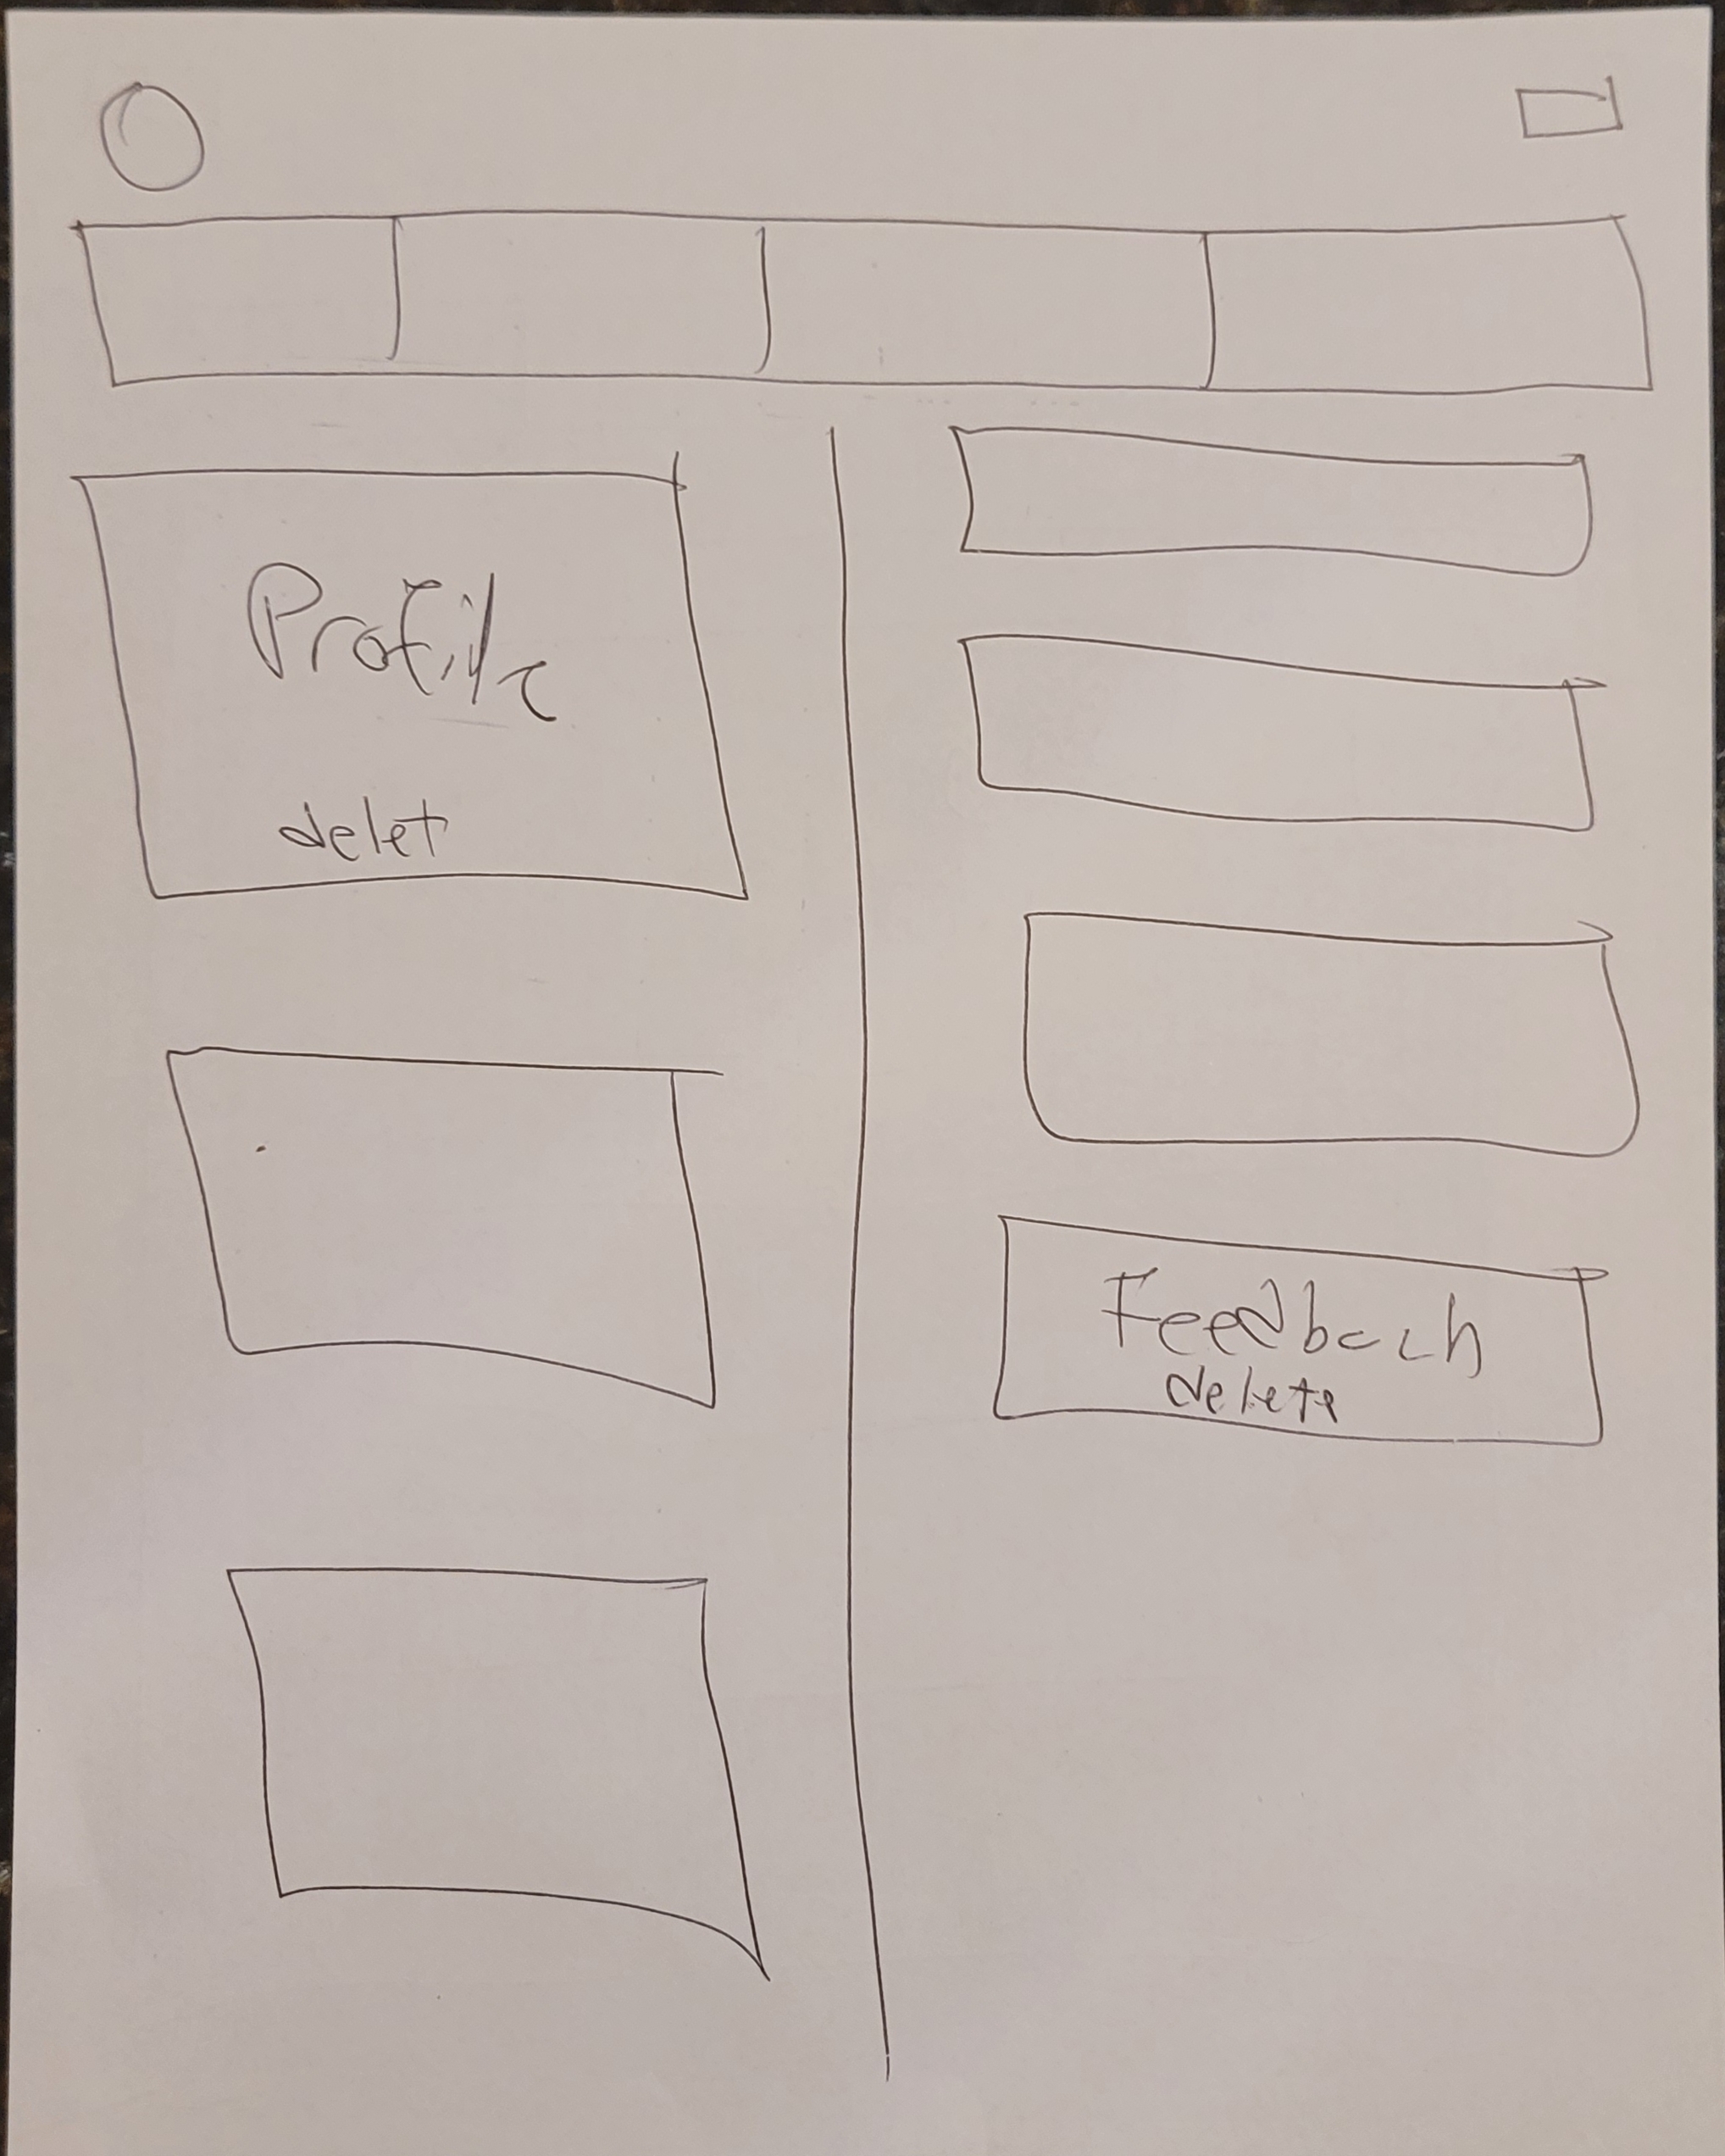 Profile
delet
Feedback
delete